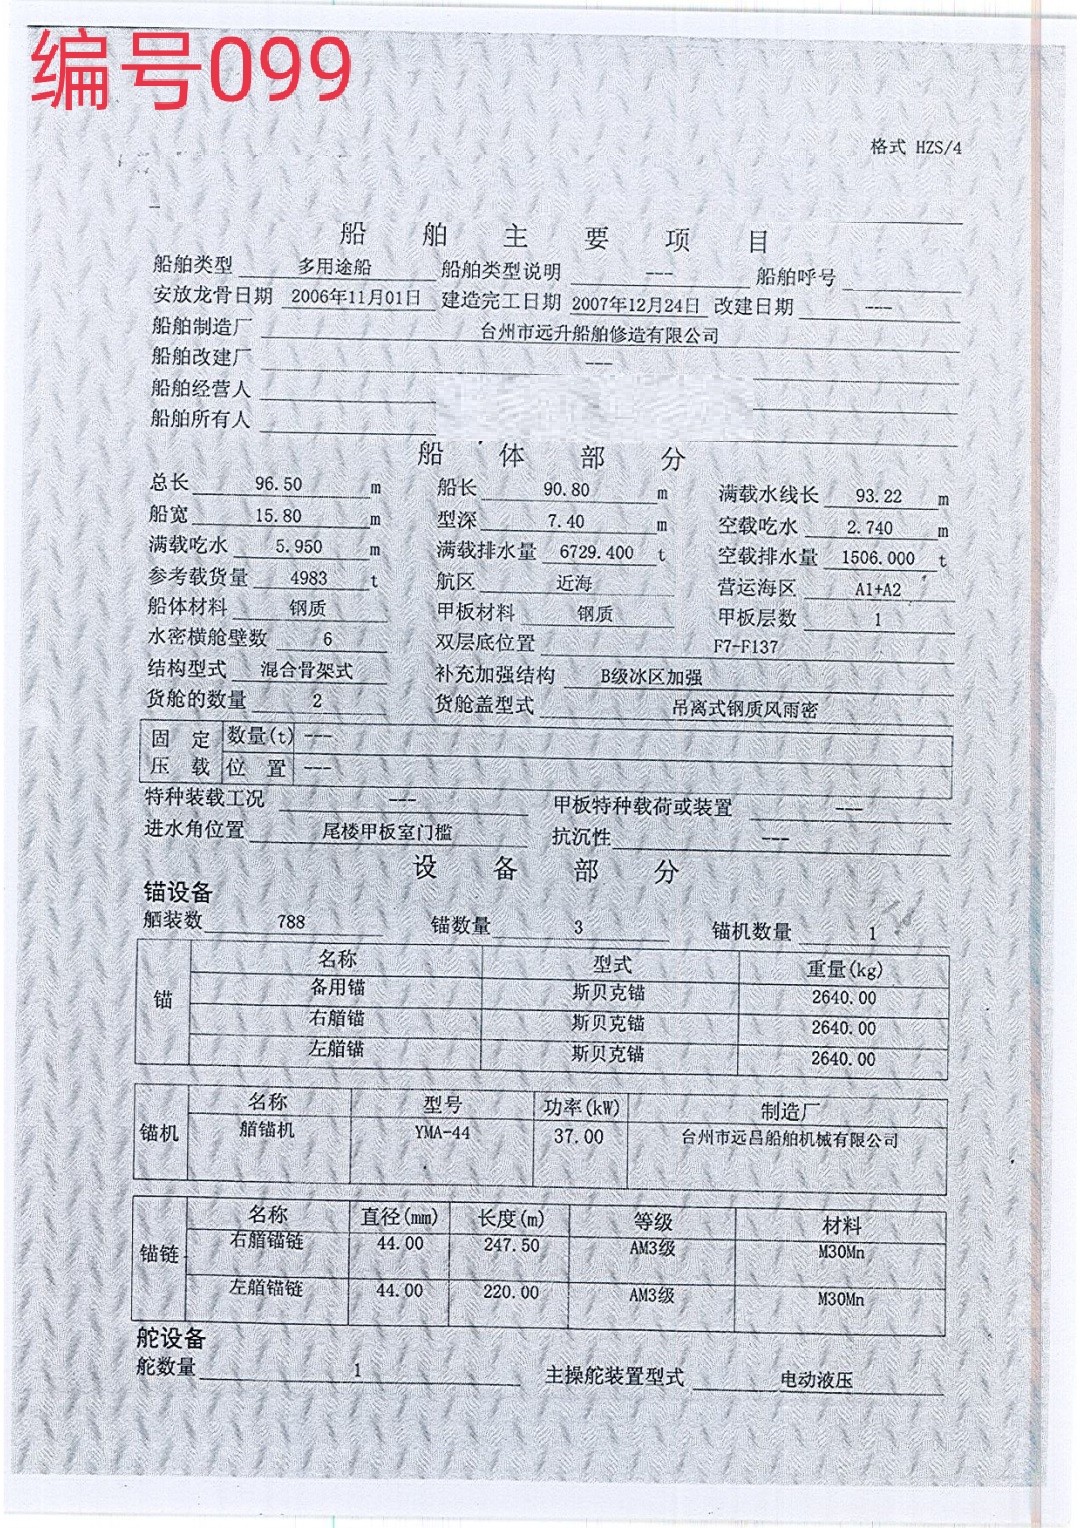 编号099
格式 HZS/4
船舶主要项目
船舶类型 多用途船 船舶类型说明 --- 船舶呼号
安放龙骨日期 2006年11月01日 建造完工日期 2007年12月24日 改建日期 ---
船舶制造厂 台州市远升船舶修造有限公司
船舶改建厂 ---
船舶经营人
船舶所有人
船体部分
总长 96.50 m 船长 90.80 m 满载水线长 93.22 m
船宽 15.80 m 型深 7.40 m 空载吃水 2.740 m
满载吃水 5.950 m 满载排水量 6729.400 t 空载排水量 1506.000 t
参考载货量 4983 t 航区 近海 营运海区 A1+A2
船体材料 钢质 甲板材料 钢质 甲板层数 1
水密横舱壁数 6 双层底位置 F7-F137
结构型式 混合骨架式 补充加强结构 B级冰区加强
货舱的数量 2 货舱盖型式 吊离式钢质风雨密
固定 数量(t) ---
压载 位置 ---
特种装载工况 --- 甲板特种载荷或装置 ---
进水角位置 尾楼甲板室门槛 抗沉性 ---
设备部分
锚设备
舾装数 788 锚数量 3 锚机数量 1
锚 名称 型式 重量(kg)
备用锚 斯贝克锚 2640.00
右艏锚 斯贝克锚 2640.00
左艏锚 斯贝克锚 2640.00
锚机 名称 型号 功率(kW) 制造厂
艏锚机 YMA-44 37.00 台州市远昌船舶机械有限公司
锚链 名称 直径(mm) 长度(m) 等级 材料
右艏锚链 44.00 247.50 AM3级 M30Mn
左艏锚链 44.00 220.00 AM3级 M30Mn
舵设备
舵数量 1 主操舵装置型式 电动液压